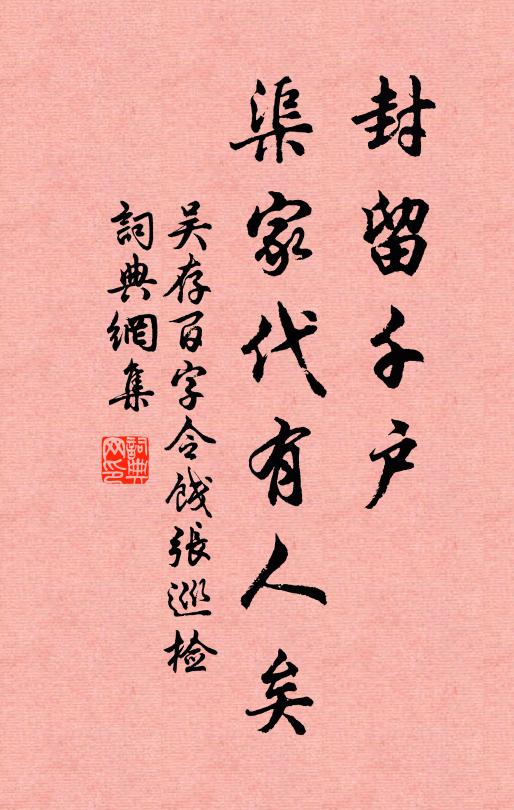 封留千户
渠家代有人矣
吴存百字令饯張巡检
詞典網集
詞典網印